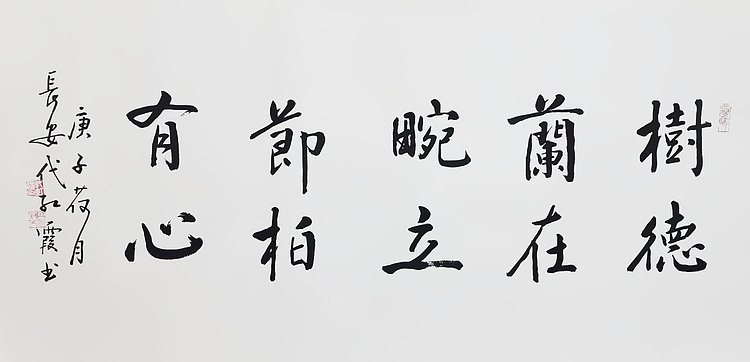 樹德
蘭在
畹立
節柏
有心
庚子荷月
長安代紅霞书